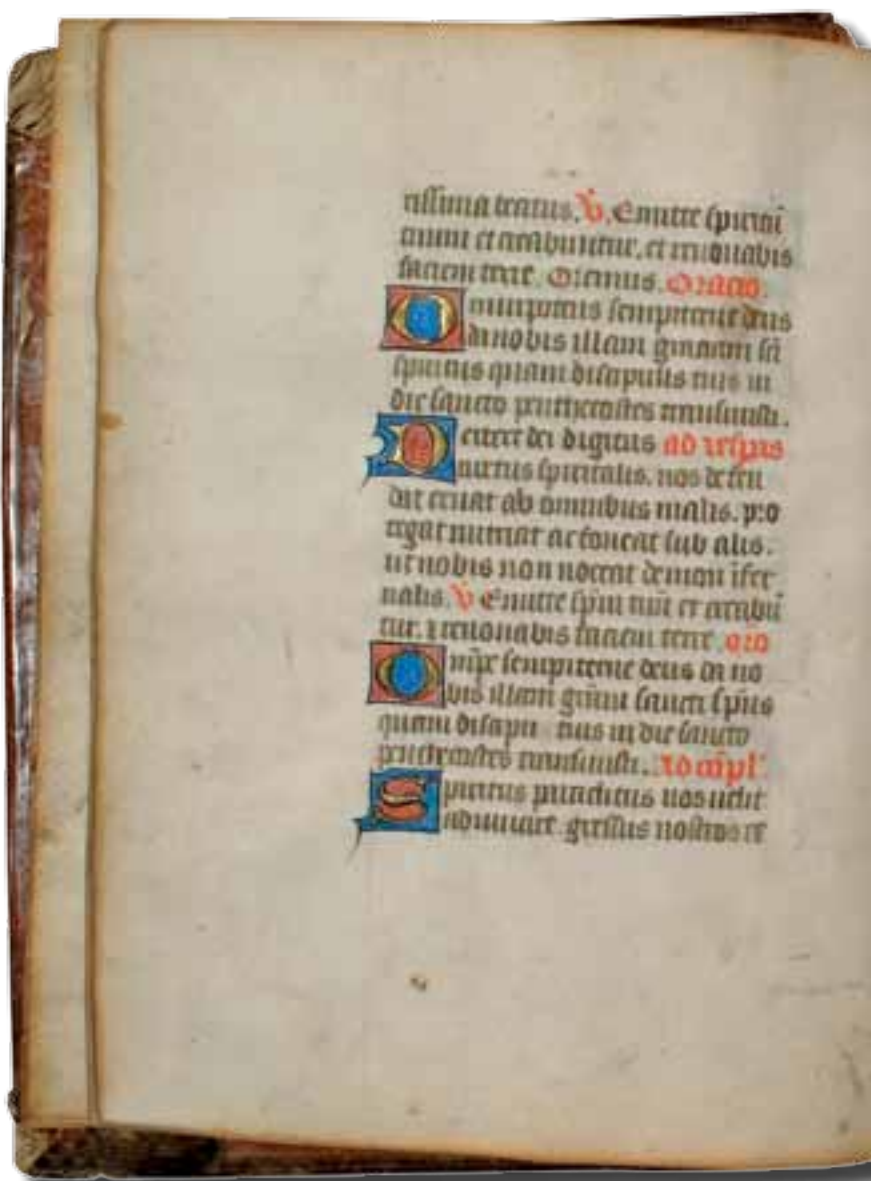 rissima beatus. V. Emitte spiritū
tuum et creabuntur. et renovabis
faciem terre. Oremus. Oracio.
Omnipotens sempiterne deus
da nobis illam graciam sā
spiritus quam discipulis tuis in
die sancto penthecostes transmisisti.
Dextere dei digitus ad vespas
virtus spiritalis. nos defen
dat eruat ab omnibus malis. pro
tegat nutriat ac foveat sub alis.
ut nobis non noceat demon īfer
nalis. V Emitte spm tuū et creabū
tur. ⁊ renovabis faciem terre. oro
Omps sempiterne deus da no
bis illam grām sancti spūs
quam discipu tuis in die sancto
penthecostes transmisisti. Ad cōpl
Spiritus paraclitus nos velit
adiuvare. gressus nostros re